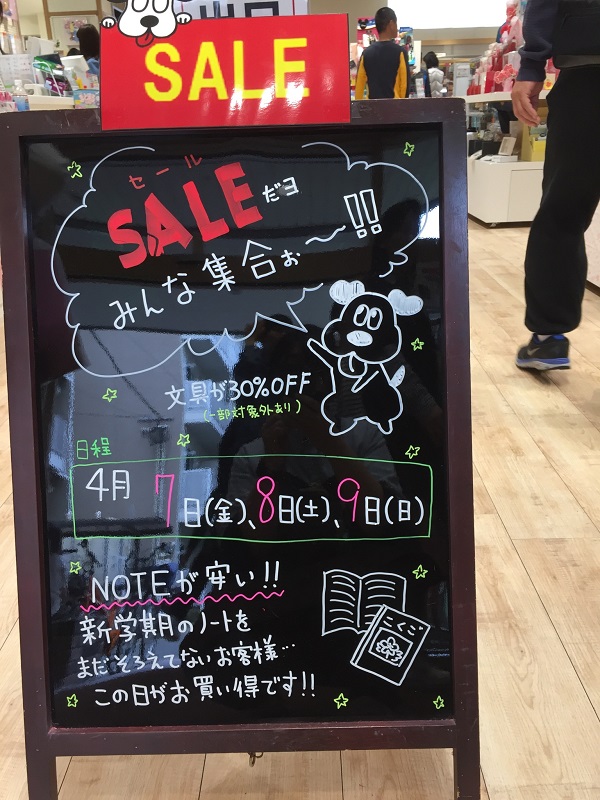 SALE
セール
SALEだヨ
みんな集合ぉ〜!!
文具が30%OFF
(一部対象外あり)
日程
4月 7日(金)、8日(土)、9日(日)
NOTEが安い!!
新学期のノートを
まだそろえてないお客様…
この日がお買い得です!!
こくご